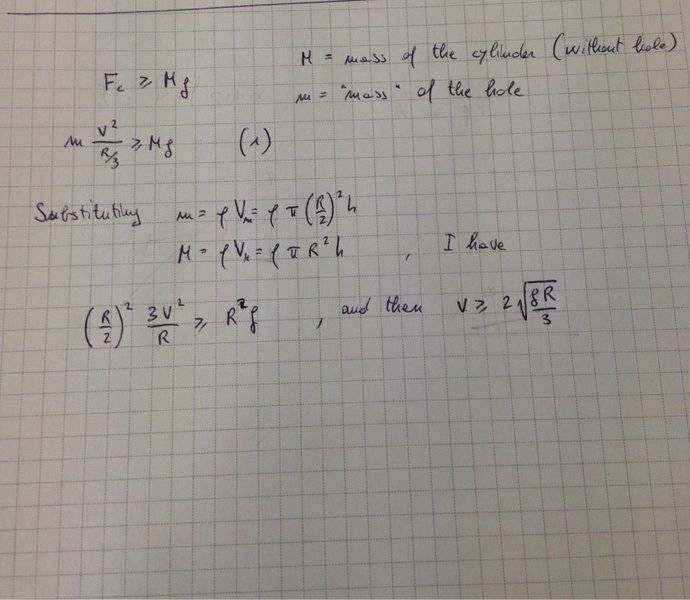 M = mass of the cylinder (without hole)
F_c ⩾ Mg
m = "mass" of the hole
m V²/(R/3) ⩾ Mg (1)
Substituting m = ρ V_m = ρ π (R/2)² h
M = ρ V_M = ρ π R² h , I have
(R/2)² 3V²/R ⩾ R² g , and then V ⩾ 2 √(gR/3)